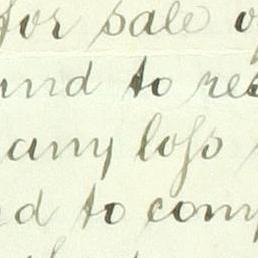 for sale o
und to res
any loſs
d to com